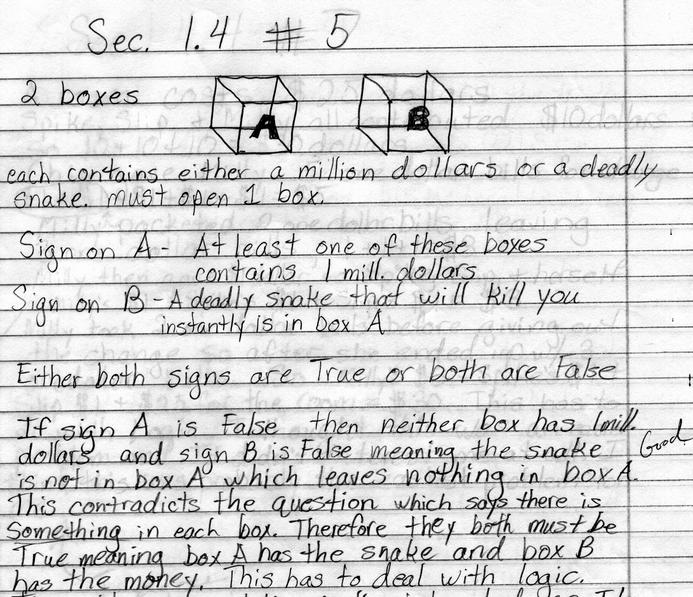 Sec. 1.4 # 5
2 boxes A B
each contains either a million dollars or a deadly
snake. must open 1 box.
Sign on A - At least one of these boxes
contains 1 mill. dollars
Sign on B - A deadly snake that will kill you
instantly is in box A
Either both signs are True or both are False
If sign A is False then neither box has 1 mill.
dollars and sign B is False meaning the snake Good
is not in box A which leaves nothing in box A.
This contradicts the question which says there is
Something in each box. Therefore they both must be
True meaning box A has the snake and box B
has the money. This has to deal with logic.